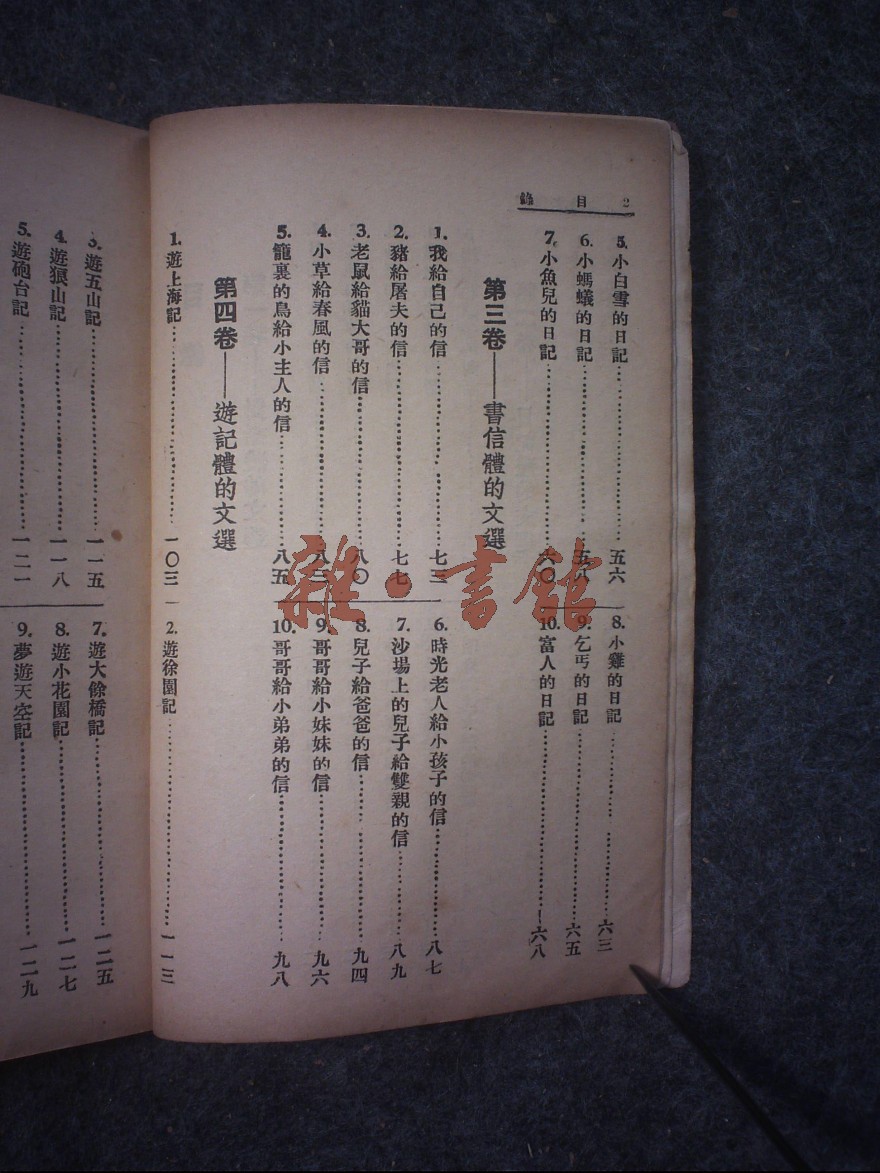 2 目 錄
5. 小白雪的日記 五六
6. 小螞蟻的日記 五八
7. 小魚兒的日記 六〇
8. 小雞的日記 六三
9. 乞丐的日記 六五
10. 富人的日記 六八
第三卷——書信體的文選
1. 我給自己的信 七三
2. 豬給屠夫的信 七七
3. 老鼠給貓大哥的信 八〇
4. 小草給春風的信 八三
5. 籠裏的鳥給小主人的信 八五
6. 時光老人給小孩子的信 八七
7. 沙場上的兒子給雙親的信 八九
8. 兒子給爸爸的信 九四
9. 哥哥給小妹妹的信 九六
10. 哥哥給小弟弟的信 九八
第四卷——遊記體的文選
1. 遊上海記 一〇三
2. 遊徐園記 一一三
3. 遊五山記 一一五
4. 遊狼山記 一一八
5. 遊砲台記 一二一
7. 遊大餘橋記 一二五
8. 遊小花園記 一二七
9. 夢遊天空記 一二九
雜·書館